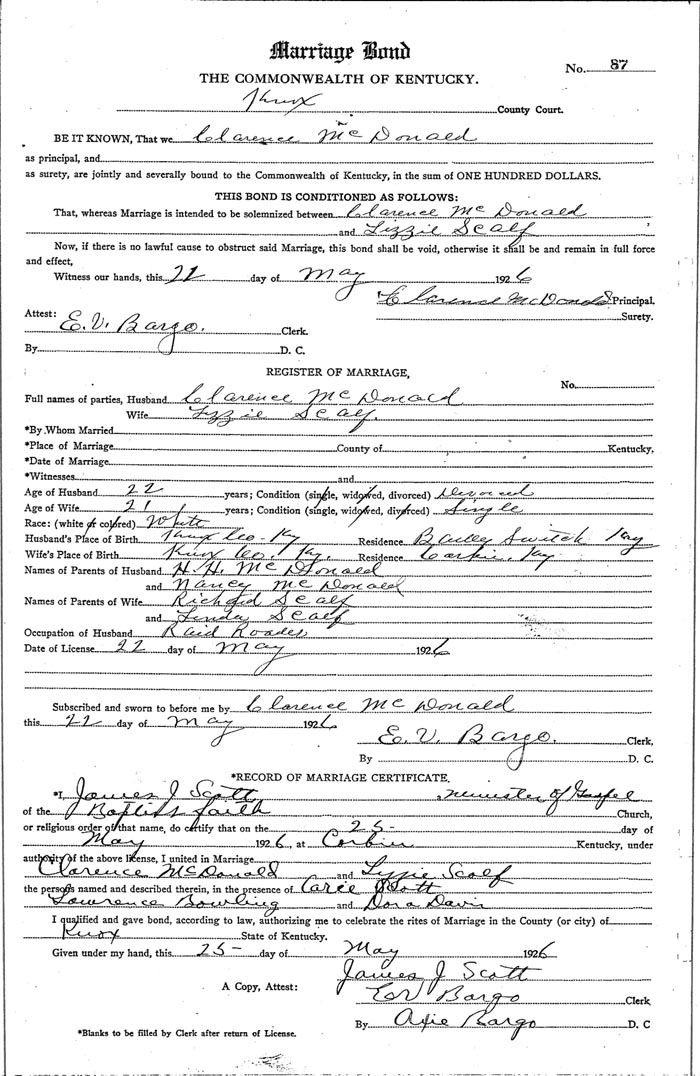 Marriage Bond
No. 87
THE COMMONWEALTH OF KENTUCKY.
Knox County Court.
BE IT KNOWN, That we Clarence McDonald
as principal, and
as surety, are jointly and severally bound to the Commonwealth of Kentucky, in the sum of ONE HUNDRED DOLLARS.
THIS BOND IS CONDITIONED AS FOLLOWS:
That, whereas Marriage is intended to be solemnized between Clarence McDonald
and Lizzie Scalf
Now, if there is no lawful cause to obstruct said Marriage, this bond shall be void, otherwise it shall be and remain in full force
and effect,
Witness our hands, this 22 day of May 1926
Clarence McDonald Principal.
Surety.
Attest: E. V. Bargo. Clerk.
By D. C.
REGISTER OF MARRIAGE,
No.
Full names of parties, Husband Clarence McDonald
Wife Lizzie Scalf.
*By Whom Married
*Place of Marriage County of Kentucky,
*Date of Marriage
*Witnesses and
Age of Husband 22 years; Condition (single, widowed, divorced) Divorced
Age of Wife 21 years; Condition (single, widowed, divorced) Single
Race: (white or colored) White
Husband's Place of Birth Knox Co. Ky Residence Bailey Switch Ky
Wife's Place of Birth Knox Co. Ky. Residence Corbin, Ky
Names of Parents of Husband H. H. McDonald
and Nancy McDonald
Names of Parents of Wife Richard Scalf
and Linda Scalf
Occupation of Husband Raid Roader
Date of License 22 day of May 1926
Subscribed and sworn to before me by Clarence McDonald
this 22 day of May 1926
E. V. Bargo. Clerk,
By D. C.
*RECORD OF MARRIAGE CERTIFICATE.
*I, James J Scott minister of Gospel
of the Baptist faith Church,
or religious order of that name, do certify that on the 25- day of
May 1926, at Corbin Kentucky, under
authority of the above license, I united in Marriage
Clarence McDonald and Lizzie Scalf
the persons named and described therein, in the presence of Scott
Lawrence Bowling and Dora Davis
I qualified and gave bond, according to law, authorizing me to celebrate the rites of Marriage in the County (or city) of
Knox State of Kentucky.
Given under my hand, this 25- day of May 1926
James J Scott
A Copy, Attest: E V Bargo Clerk
By Bargo D. C
*Blanks to be filled by Clerk after return of License.